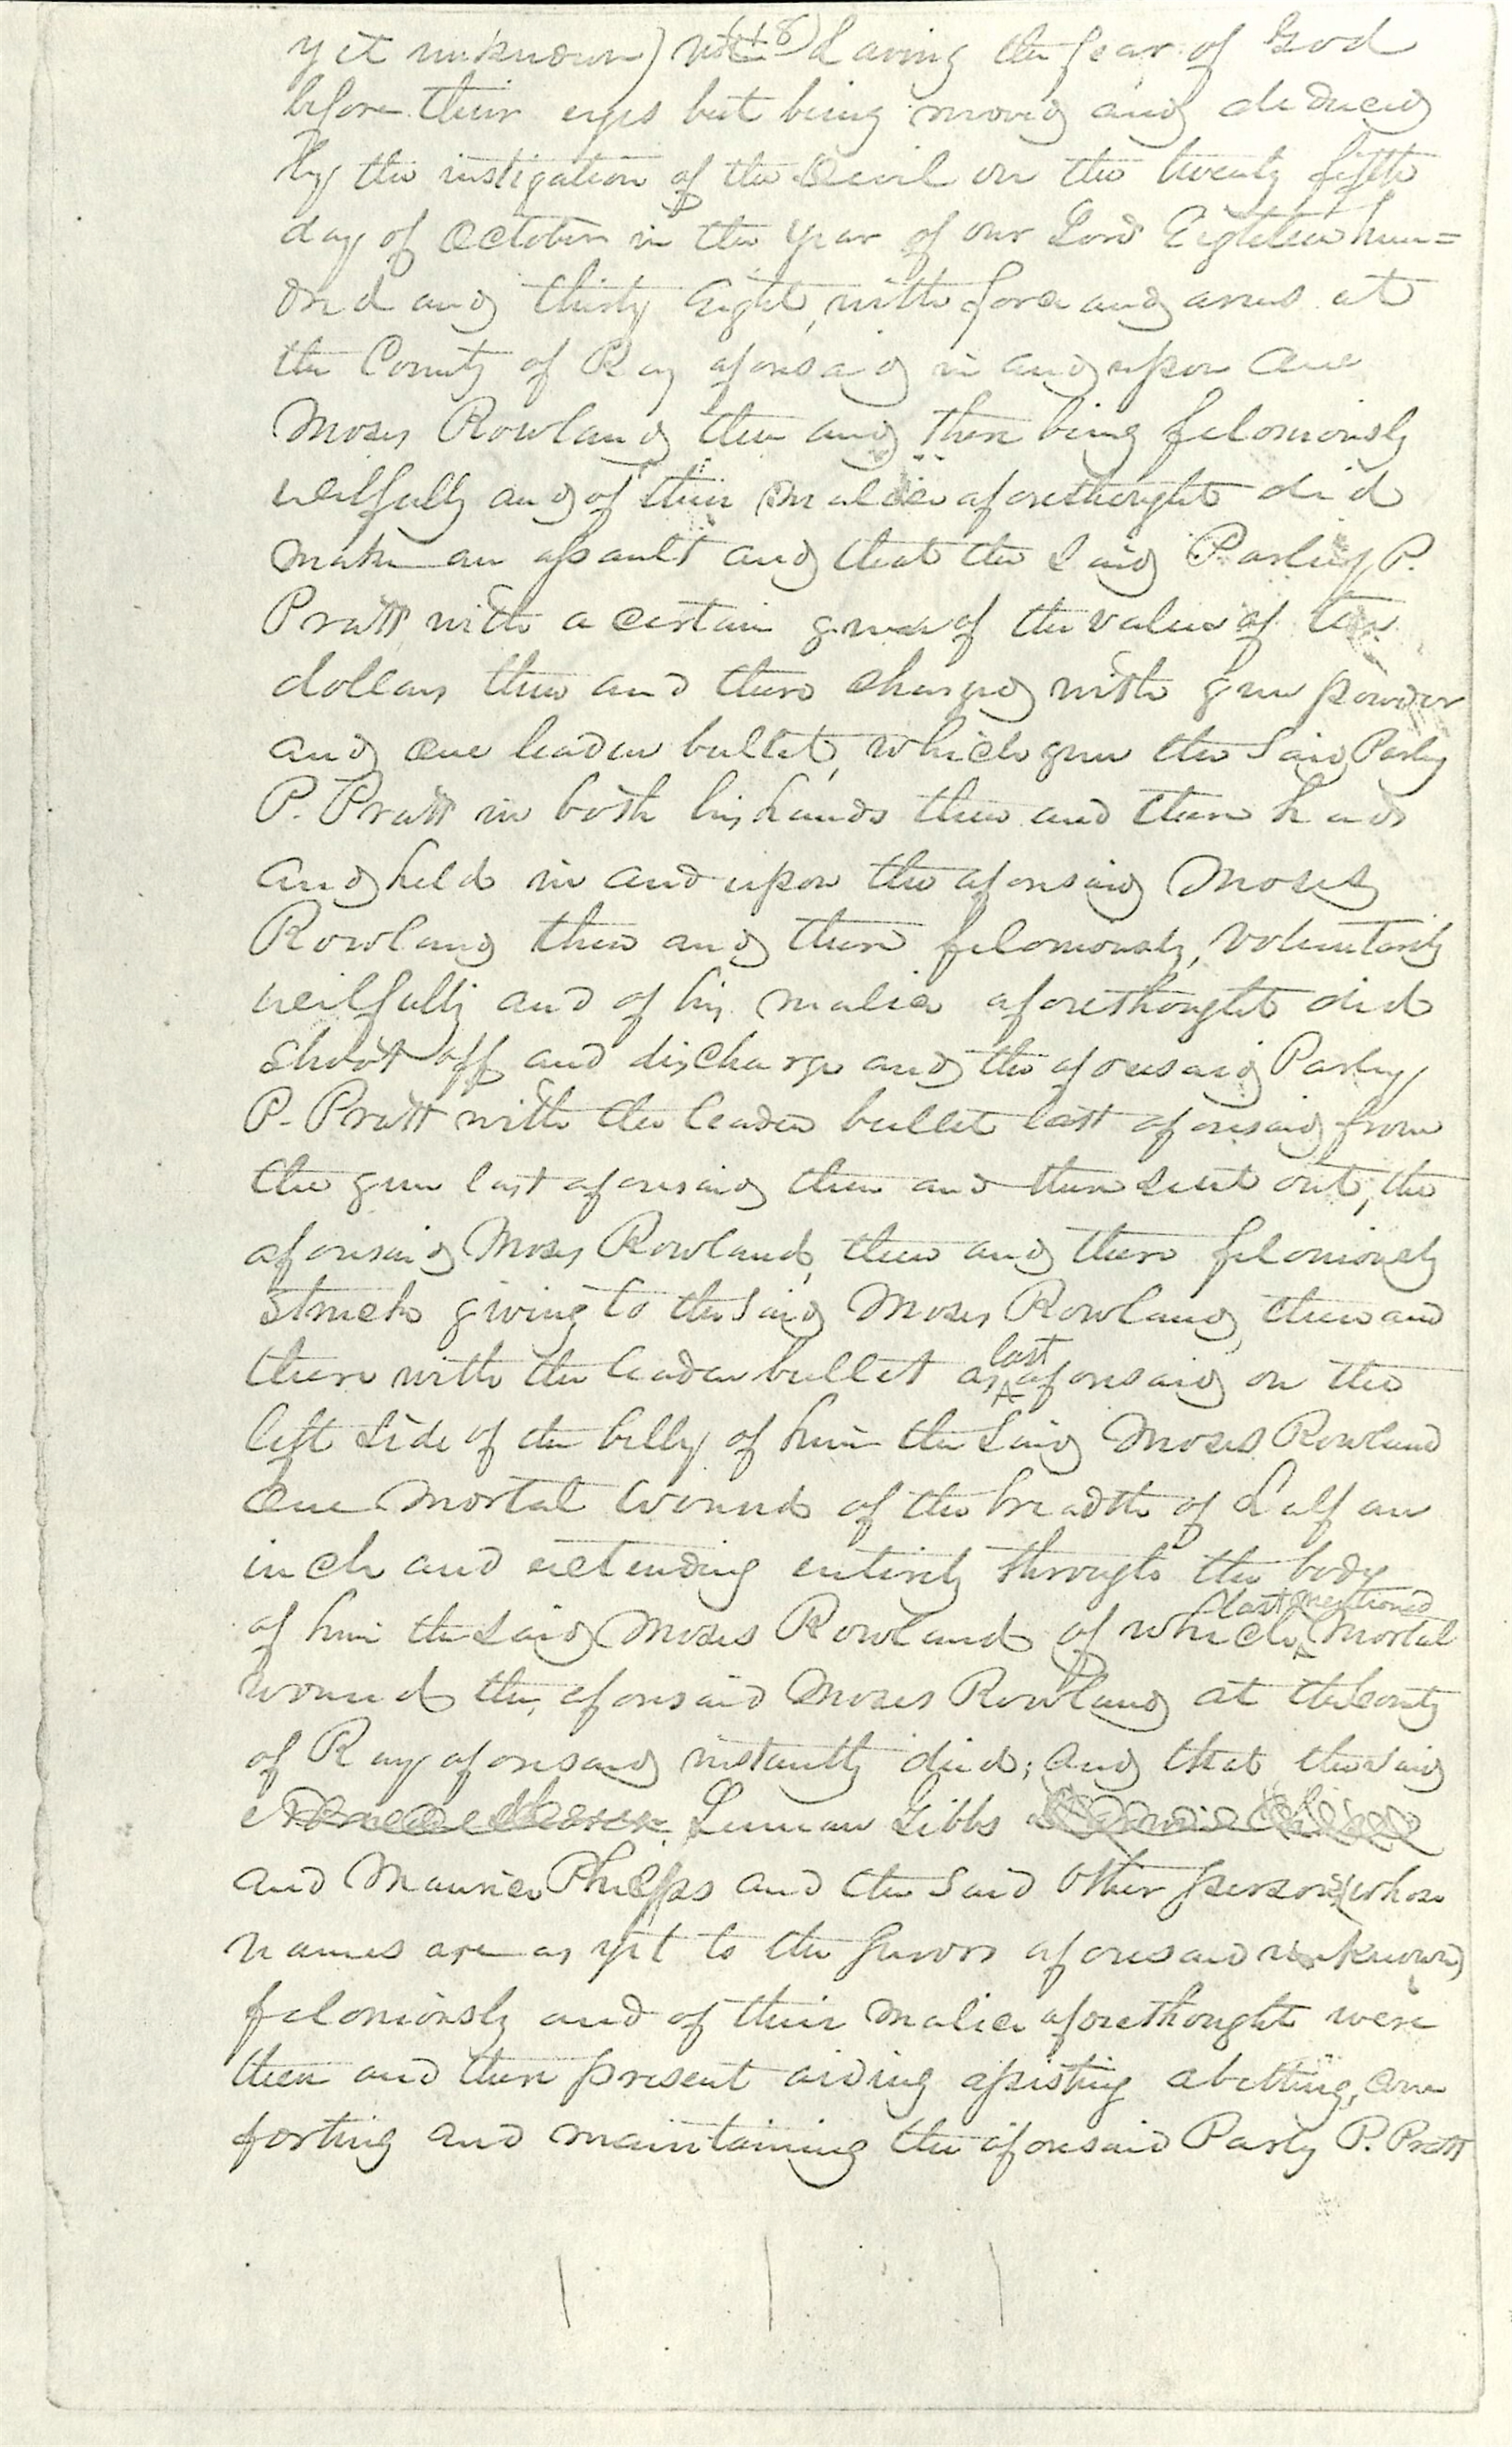 yet unknown) not (18) having the fear of God
before their eyes but being moved and seduced
by the instigation of the Devil on the twenty fifth
day of October in the year of our Lord Eighteen hun=
dred and thirty Eight, with force and arms at
the County of Ray aforesaid in and upon one
Moses Rowland then and there being feloniously
wilfully and of their malice aforethought did
make an assault and that the said Parley P.
Pratt with a certain gun of the value of ten
dollars then and there charged with gun powder
and one leaden bullet, which gun the said Parley
P. Pratt in both his hands then and there had
and held in and upon the aforesaid Moses
Rowland then and there feloniously, voluntarily
wilfully and of his malice aforethought did
shoot off and discharge and the aforesaid Parley
P. Pratt with the leaden bullet last aforesaid from
the gun last aforesaid then and there sent out, the
aforesaid Moses Rowland, then and there feloniously
struck giving to the said Moses Rowland, then and
there with the leaden bullet as last aforesaid on the
left side of the belly of him the said Moses Rowland
one mortal wound of the breadth of half an
inch and extending entirely through the body
of him the said Moses Rowland of which last mentioned mortal
wound the aforesaid Moses Rowland at the County
of Ray aforesaid instantly died; and that the said
Luman Gibbs
and Maurice Phelps and the said other persons (whose
names are as yet to the Jurors aforesaid unknown)
feloniously and of their malice aforethought were
then and there present aiding assisting abetting, com
forting and maintaining the aforesaid Parley P. Pratt